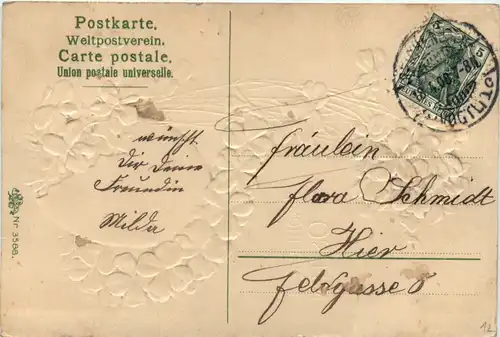 Postkarte.
Weltpostverein.
Carte postale.
Union postale universelle.
wünscht
Dir Deine
Freundin
Milda
Nr. 3566.
Fräulein
Flora Schmidt
Hier
Feldgasse
12